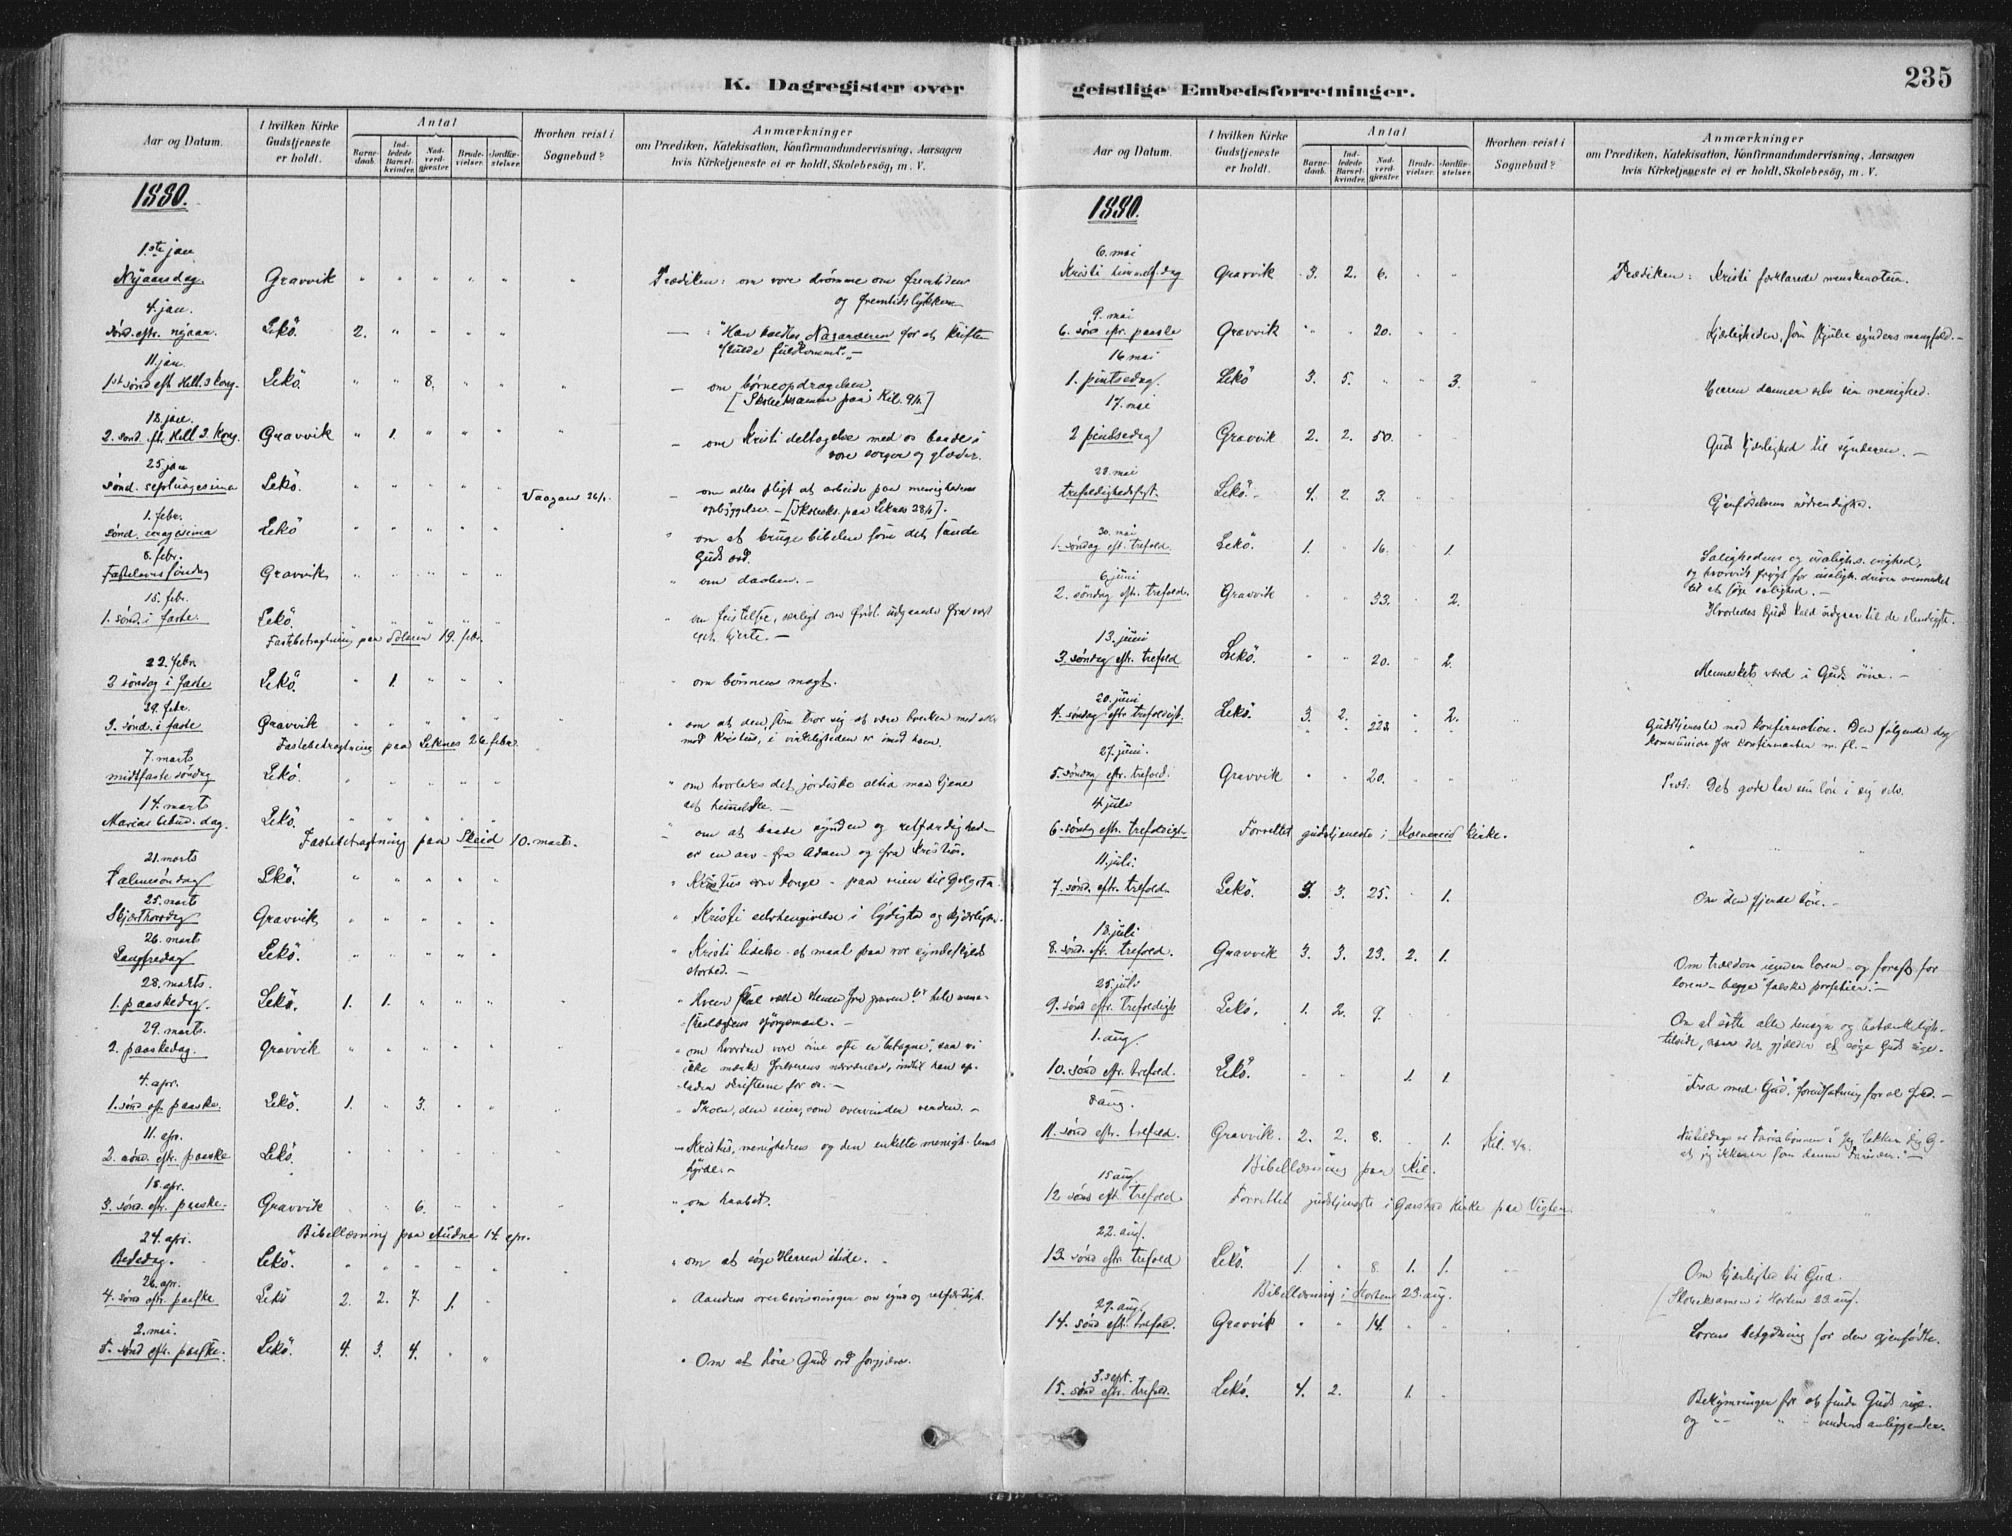 K. Dagregister over
Aar og Datum.
I hvilken Kirke Gudstjeneste er holdt.
Antal
Barne-daab.
Ind-ledede Barsel-kvinder.
Nad-verd-gjæster.
Brude-vielser.
Jordfæ-stelser.
Hvorhen reist i Sognebud?
Anmærkninger
om Prædiken, Katekisation, Konfirmandundervisning, Aarsagen
hvis Kirketjeneste ei er holdt, Skolebesög, m. V.
1880.
1ste jan
Nyaarsdag. Gravvik " " " " " " Prædiken: om vore drömme om fremtiden
og fremtidslykken
4. jan.
sönd. eftr. nyaar. Lekö. 2. " " " " — : "Han kaldtes Nazaræeren for at skriften
skulde fuldkommes."
11. jan.
1ste sönd eft Hell. 3 Kong. Lekö. " " 8. " " " — om börneopdragelsen.
[Skoleeksamen paa Kil. 9/1.]
18. jan.
2. sönd. eftr. Hell. 3. Kong. Gravvik " 1. " " " " — om Kristi deltagelse med os baade i
vore sorger og glæder.
25 jan
sönd. septuagesima Lekö. " " " " " Vaagan 26/1. — om alles pligt at arbeide paa menighedens
opbyggelse. — [Skoleeks. paa Leknes 28/1].
1. febr.
sönd. sexagesima Lekö " " " " " " " om at bruge bibelen som det sande
Guds ord.
8. febr.
Fastelavnssöndag Gravvik " " " " " " om daaben. —
15. febr.
1. sönd. i faste. Lekö. " " " " " " om fristelse, særligt om frist. udgaaende fra vort
eget hjerte. —
Fastebetragtning paa Solsem 19. febr.
22. febr.
2 söndag i faste Lekö. " 1. " " " " om bönnens magt.
29. febr.
3. sönd. i faste Gravvik " " " " " " om at den, som tror sig at være hverken med eller
mod Kristus, i virkeligheden er imod ham.
Fastebetragtning paa Leknes 26 febr.
7. marts
midtfaste söndag Lekö. " " " " " " om hvorledes det jordiske altid maa tjene
det himmelske. —
14. marts
Marias bebud. dag. Lekö. " " " " " — om at baade synden og retfærdighed
er en arv — fra Adam og fra Kristus.
Fastebetragtning paa Skeid 10. marts.
21. marts
Palmesöndag Lekö. " " " " " " Kristus som konge — paa veien til Golgata.
25. marts
Skjærthorsdag Gravvik " " " " " " Kristi selvhengivelse i lydighed og kjærlighed.
26. marts
Langfredag Lekö. " " " " " " Kristi lidelse et maal paa vor syndeskylds
storhed. —
28. marts.
1. paaskedag. Lekö. 1. 1. " " " " " Hvem skal vælte stenen fra graven? hele menne-
skeslægtens spörgsmaal. —
29. marts.
2. paaskedag. Gravvik " " " " " " om hvordan vore öine ofte er "betagne", saa vi
ikke mærke Frelserens nærværelse, indtil han op-
lader skrifterne for os. —
4. apr.
1. sönd eft. paaske. Lekö. 1. " 3. " " " Troen, den seier, som overvinder verden. —
11. apr.
2. sönd. eftr. paaske Lekö. " " " " " — Kristus, menighedens og den enkelte menigh. lems
hyrde. —
18. apr.
3. sönd. eftr. paaske. Gravvik " " 6. " " " " om haabet.
Bibellæsning paa Audne 14. apr.
24. apr.
Bededag. Lekö. " " " " " " om at söge Herren itide. —
26. apr.
4. sönd eftr. paaske Lekö 2. 2. 7. 1. " " Aandens overbevisninger om synd og retfærdigh.
2. mai.
5. sönd eftr. paaske. Lekö. 4. 3. 4. " " " Om at höre Guds ord forgjæves.
geistlige Embedsforretninger. 235
Aar og Datum.
I hvilken Kirke Gudstjeneste er holdt.
Antal
Barne-daab.
Ind-ledede Barsel-kvinder.
Nad-verd-gjæster.
Brude-vielser.
Jordfæ-stelser.
Hvorhen reist i Sognebud?
Anmærkninger
om Prædiken, Katekisation, Konfirmandundervisning, Aarsagen
hvis Kirketjeneste ei er holdt, Skolebesög, m. V.
1880.
6. mai
Kristi himmelf. dag Gravvik 3. 2. 6. " " Prædiken: Kristi forklarede menskenatur.
9. mai
6. sönd eftr. paaske Gravvik " " 20. " " Kjærligheden, som skjuler syndens mangfold. —
16. mai
1. pintsedag. Lekö 3. 5. " " 3. " Herren danner selv sin menighed.
17. mai
2 pintsedag Gravvik 2. 2. 50. " " Guds kjærlighed til synderen. —
23. mai
Trefoldighedsfest. Lekö. 4. 2. 3. " " Gjenfödelsens nödvendighed.
30. mai
1. söndag eft. trefold. Lekö. 1. " 16. 1. Salighedens og usaligh. evighed,
og hvorvidt frygt for usaligh. driver mennesket
til at söge salighed. —
6 juni
2. söndag eftr. trefold. Gravvik 33. 2. Hvorledes Guds kald udgaar til de elendigste.
13. juni
3. söndag eftr. trefold Lekö. " " 20. " 2. Menneskets værd i Guds öine. —
20. juni
4. söndag eftr. trefoldigh. Lekö. 3. 2. " 2. Gudstjeneste med konfirmation. Den fölgende dag
" " 22. " " kommunion for konfirmanter m. fl. —
27. juni.
5. söndag eftr. trefold. Gravvik " " 20. " " Præd: Det gode har sin lön i sig selv.
4. juli
6. söndag eftr. trefoldigh. Forrettet gudstjeneste i Kolvereid kirke.
11. juli.
7. sönd. eftr. trefold. Lekö. 3. 3. 25. " 1. Om den fjerde bön. —
18. juli
8. sönd. eftr. trefold. Gravvik 3. 3. 23. 2. 1. Om trældom under loven og foragt for
loven — begge falske profetier. —
25. juli
9. sönd eftr. trefoldigh Lekö. 1. 2. 9. Om at sætte alle hensyn og betænkeligh.
tilside, naar det gjælder at söge Guds rige.
1. aug.
10. sönd eftr. trefold. Lekö. " " " 1. 1. "Fred med Gud", forudsætning for al fred. —
8 aug.
11. sönd eftr. trefold. Gravvik. 2. 2. 8. " 1. Kil. 8/8.
at jeg ikke er som denne Farisæer." —
Bibellæsning paa Kil.
15 aug.
12 sönd eft. trefold Forrettet gudstjeneste i Garstad kirke paa Vigten.
22. aug.
13. sönd eftr trefold Lekö. 1. " 8. 1. 1. Om kjærlighed til Gud.
Bibellæsning i Horten 23. aug. [Skoleeksamen i Horten 23. aug.
29. aug.
14. sönd eftr. trefold. Gravvik " " 14. " " Lovens betydning for den gjenfödte.
5. sept.
15. sönd eftr. trefold. Lekö. 4. 2. 1. " Bekymringer for at finde Guds rige
og " " verdens anliggender.